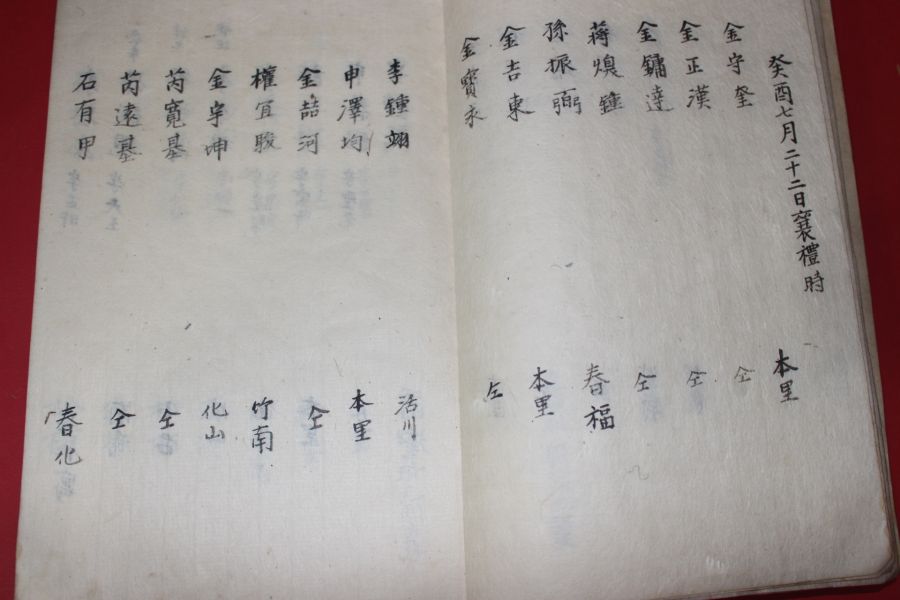 癸酉七月二十二日襄禮時
金守奎 本里
金正漢 仝
金鏞逵 仝
蔣煥鍾 仝
孫振弼 春福
金吉東 本里
金寶永 仝
李鍾翊 活川
申澤均 本里
金喆河 仝
權宜駿 竹南
金宇坤 化山
芮寬基 仝
芮遠基 仝
石有甲 春化